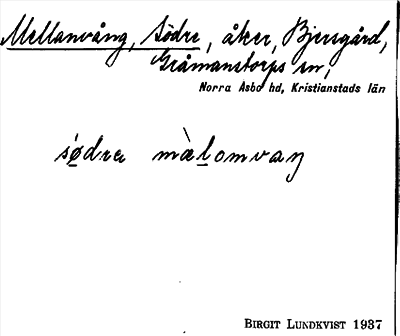 Mellanvång, Södre, åker, Bjersgård,
Gråmanstorps sn,
Norra Åsbo hd, Kristianstads län
sødra màlomvaŋ
BIRGIT LUNDKVIST 1937